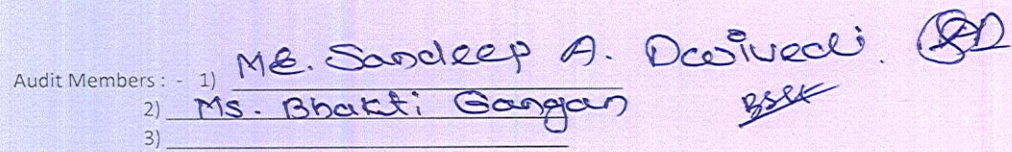 Audit Members : - 1) Mr. Sandeep A. Dwivedi.
2) Ms. Bhakti Gangan
3)